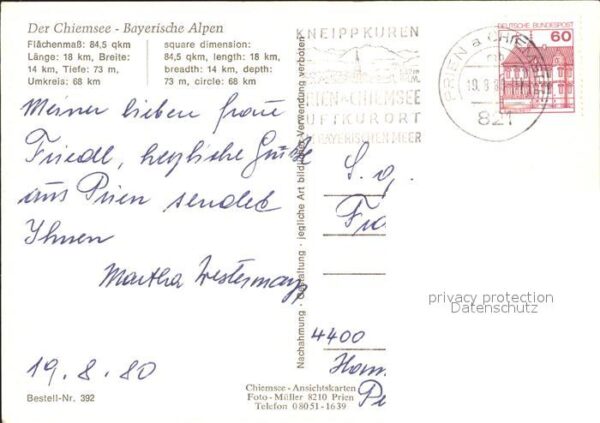 Der Chiemsee - Bayerische Alpen
Flächenmaß: 84,5 qkm
Länge: 18 km, Breite:
14 km, Tiefe: 73 m,
Umkreis: 68 km
square dimension:
84,5 qkm, length: 18 km,
breadth: 14 km, depth:
73 m, circle: 68 km
KNEIPPKUREN
PRIEN a CHIEMSEE
LUFTKURORT
BAYERISCHEN MEER
PRIEN a CHIEMSEE
19.8.80
821
DEUTSCHE BUNDESPOST
60
Meiner lieben Frau
Friedl, herzliche Grüße
aus Prien sendet
Ihnen
Martha Westermayr
19.8.80
Bestell-Nr. 392
Nachahmung - Gestaltung - jegliche Art bildlicher Verwendung verboten
S. g.
4400
Chiemsee - Ansichtskarten
Foto - Müller 8210 Prien
Telefon 08051 - 1639
privacy protection
Datenschutz